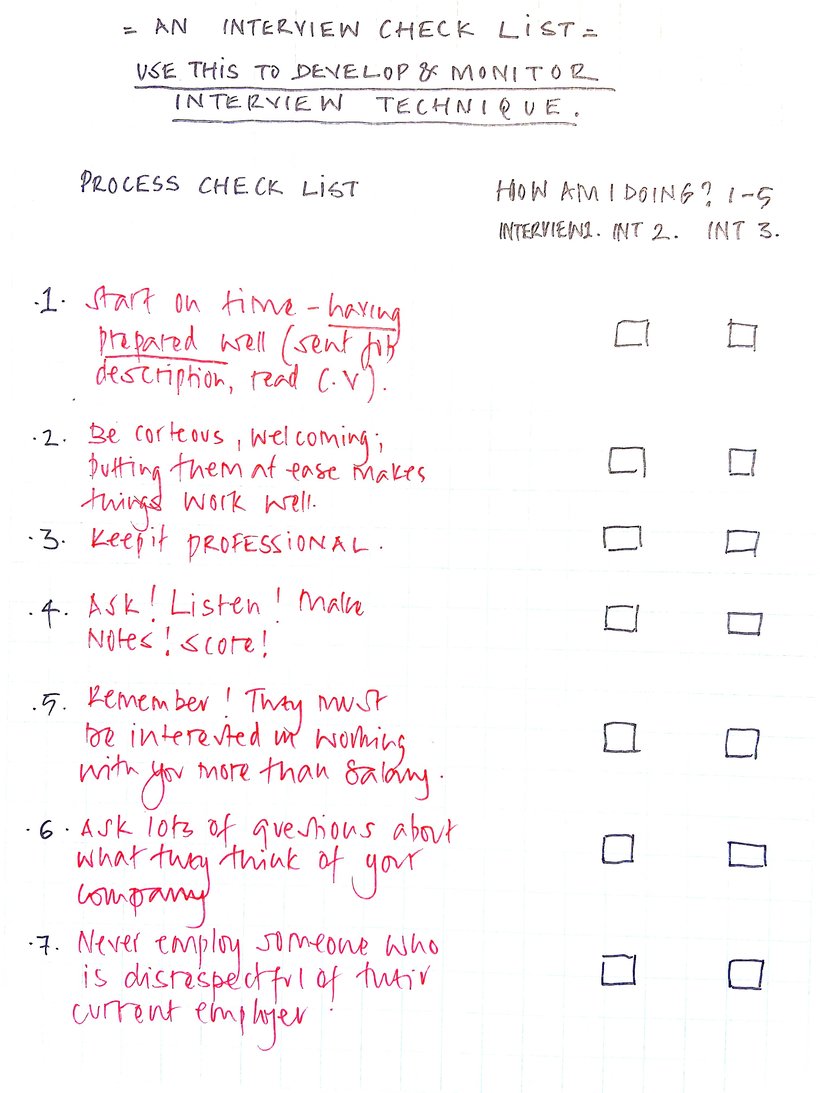 = AN INTERVIEW CHECK LIST =
USE THIS TO DEVELOP & MONITOR
INTERVIEW TECHNIQUE.
PROCESS CHECK LIST
HOW AM I DOING? 1-5
INTERVIEW1. INT 2. INT 3.
.1. Start on time - having
prepared well (sent job
description, read C.V).
.2. Be corteous, welcoming;
putting them at ease makes
things work well.
.3. Keep it PROFESSIONAL.
.4. Ask! Listen! Make
Notes! Score!
.5. Remember! They must
be interested in working
with you more than Salary.
.6. Ask lots of questions about
what they think of your
company
.7. Never employ someone who
is disrespectful of their
current employer.